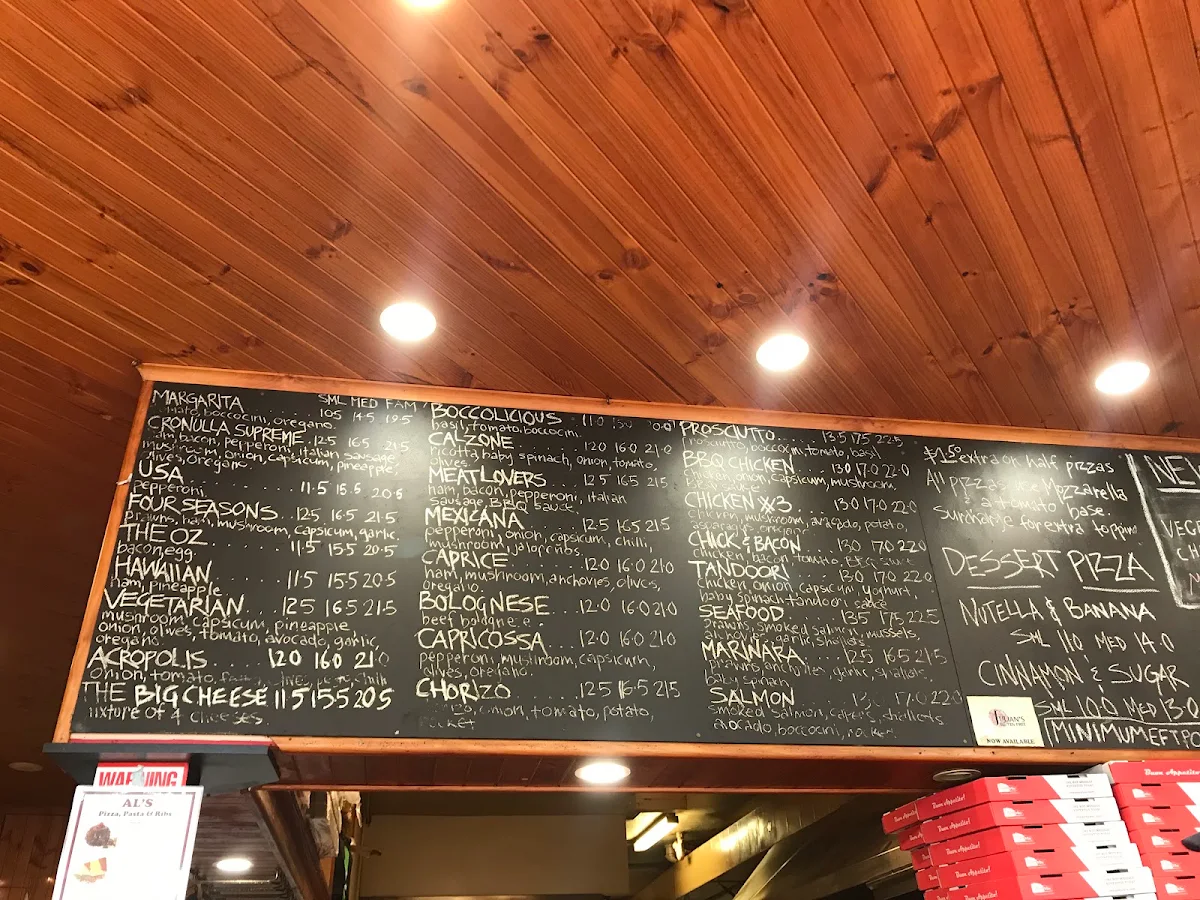 MARGARITA SML MED FAM
boccocini, oregano. 10.5 14.5 19.5
CRONULLA SUPREME. 12.5 16.5 21.5
ham, bacon, pepperoni, italian sausage
mushroom, onion, capsicum, pineapple,
olives, oregano.
USA
pepperoni. 11.5 15.5 20.5
FOUR SEASONS. 12.5 16.5 21.5
prawns, ham, mushroom, capsicum, garlic.
THE OZ
bacon, egg. 11.5 15.5 20.5
HAWAIIAN 11.5 15.5 20.5
ham, pineapple
VEGETARIAN 12.5 16.5 21.5
mushroom, capsicum, pineapple
onion, olives, tomato, avocado, garlic,
oregano
ACROPOLIS 12.0 16.0 21.0
onion, tomato,
THE BIG CHEESE 11.5 15.5 20.5
mixture of 4 cheeses
BOCCOLICIOUS 11.0
basil, tomato, boccocini.
CALZONE 12.0 16.0 21.0
ricotta, baby spinach, onion, tomato,
olives
MEATLOVERS 12.5 16.5 21.5
ham, bacon, pepperoni, italian
sausage BBQ sauce.
MEXICANA 12.5 16.5 21.5
pepperoni, onion, capsicum, chilli,
mushroom
CAPRICE 12.0 16.0 21.0
ham, mushroom, anchovies, olives,
oregano.
BOLOGNESE 12.0 16.0 21.0
beef
CAPRICOSSA 12.0 16.0 21.0
pepperoni, mushroom, capsicum,
olives, oregano.
CHORIZO 12.5 16.5 21.5
onion, tomato, potato,
PROSCIUTTO 13.5 17.5 22.5
prosciutto, boccocini, tomato, basil
BBQ CHICKEN 13.0 17.0 22.0
onion, capsicum, mushroom,
CHICKEN X3. 13.0 17.0 22.0
chicken, mushroom, avocado, potato,
CHICK & BACON 13.0 17.0 22.0
chicken, bacon, tomato, BBQ sauce
TANDOORI 13.0 17.0 22.0
chicken, onion, capsicum, yoghurt,
baby spinach tandoori sauce
SEAFOOD 13.5 17.5 22.5
prawns, smoked salmon, mussels,
garlic, shallots
MARINARA 12.5 16.5 21.5
prawns, anchovies, garlic, shallots.
baby spinach
SALMON 17.0 22.0
smoked salmon, capers, shallots
avocado, boccocini,
$1.50 extra on half pizzas
All pizzas Mozzarella
& a tomato base.
Surcharge for extra topping
DESSERT PIZZA
NUTELLA & BANANA
SML 11.0 MED 14.0
CINNAMON & SUGAR
SML 10.0 MED 13.0
MINIMUM EFTPO
NEW
VEG
NOW AVAILABLE
WARNING
AL'S
Pizza, Pasta & Ribs
Buon Appetito!
Buon Appetito!
Buon Appetito!
Buon Appetito!
Buon Appetito!
Buon Appetito!